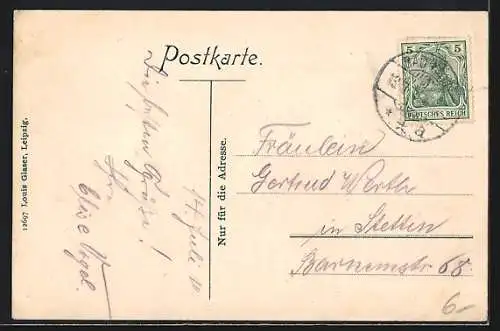 Postkarte.
5 5
DEUTSCHES REICH
Die besten Grüße!
Ihre
Elise Vogel.
14. Juli 10
12697 Louis Glaser, Leipzig.
Nur für die Adresse.
Fräulein
Gertrud Werth
in Stettin
Barnimstr 68.
6-